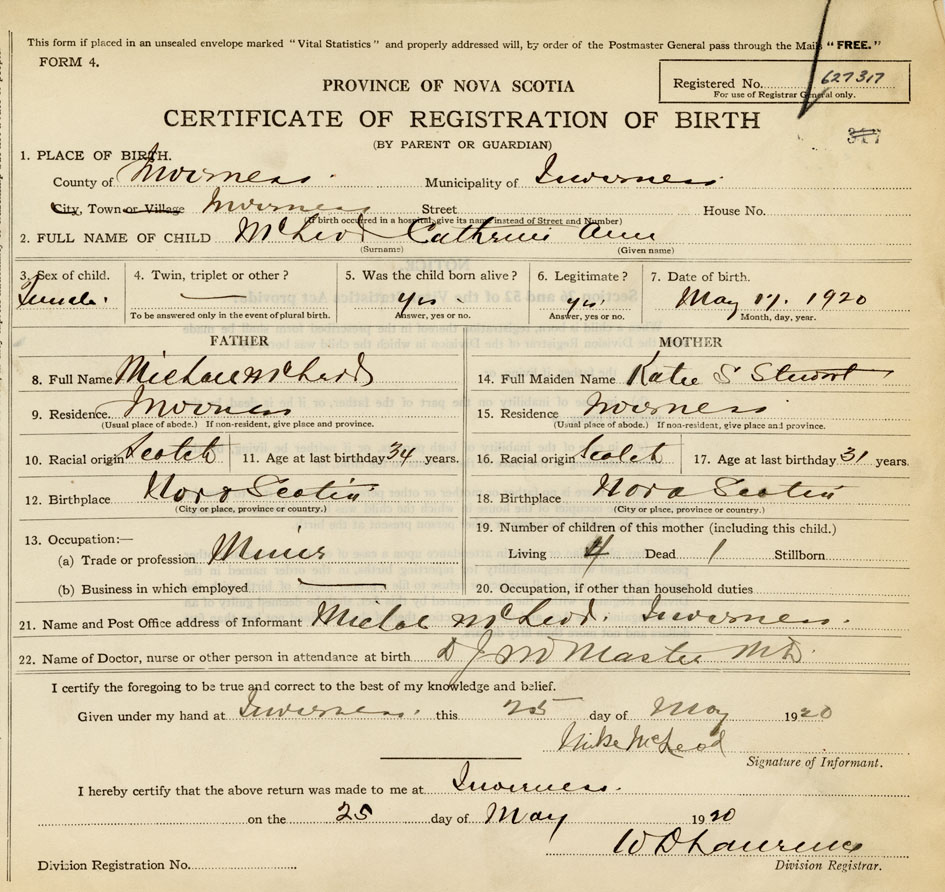 This form if placed in an unsealed envelope marked "Vital Statistics" and properly addressed will, by order of the Postmaster General pass through the Mails "FREE."
FORM 4.
PROVINCE OF NOVA SCOTIA
Registered No. 627317
For use of Registrar General only.
CERTIFICATE OF REGISTRATION OF BIRTH
(BY PARENT OR GUARDIAN)
1. PLACE OF BIRTH.
County of Inverness. Municipality of Inverness
City, Town or Village Inverness Street House No.
(If birth occurred in a hospital, give its name instead of Street and Number)
2. FULL NAME OF CHILD McLeod Catherine Ann
(Surname) (Given name)
3. Sex of child. 4. Twin, triplet or other? 5. Was the child born alive? 6. Legitimate? 7. Date of birth.
Female. yes yes May 17. 1920
To be answered only in the event of plural birth. Answer, yes or no. Answer, yes or no. Month, day, year.
FATHER MOTHER
8. Full Name Michael McLeod 14. Full Maiden Name Katie S Stewart
9. Residence. Inverness 15. Residence Inverness
(Usual place of abode.) If non-resident, give place and province. (Usual place of abode.) If non-resident, give place and province.
10. Racial origin Scotch 11. Age at last birthday 34 years. 16. Racial origin Scotch 17. Age at last birthday 31 years.
12. Birthplace Nova Scotia 18. Birthplace Nova Scotia
(City or place, province or country.) (City or place, province or country.)
19. Number of children of this mother (including this child.)
13. Occupation:—
(a) Trade or profession Miner Living 4 Dead 1 Stillborn
(b) Business in which employed 20. Occupation, if other than household duties
21. Name and Post Office address of Informant Michael McLeod. Inverness.
22. Name of Doctor, nurse or other person in attendance at birth D J McMaster M.D.
I certify the foregoing to be true and correct to the best of my knowledge and belief.
Given under my hand at Inverness. this 25 day of May 1920
Mike McLeod
Signature of Informant.
I hereby certify that the above return was made to me at Inverness.
on the 25 day of May 1920
W D Lawrence
Division Registration No. Division Registrar.